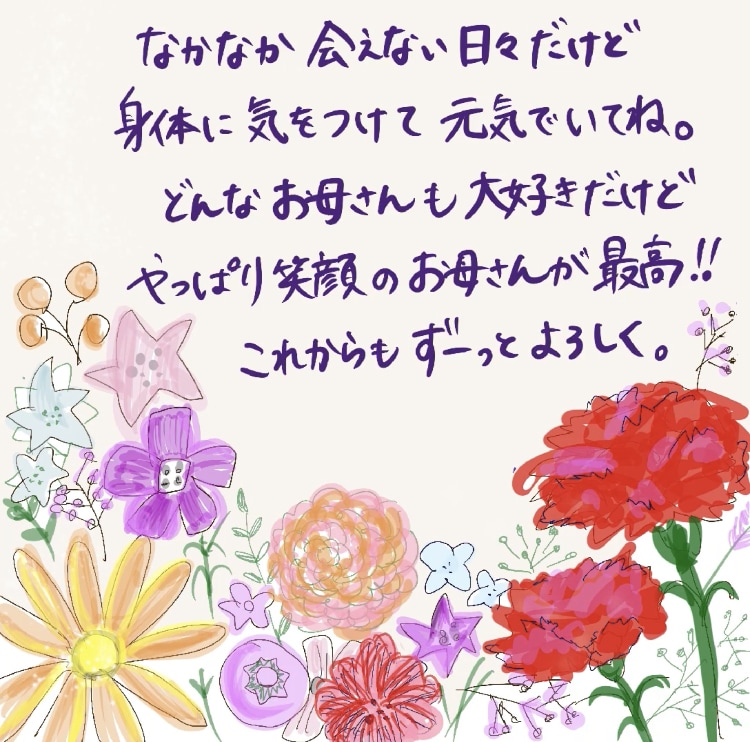 なかなか会えない日々だけど
身体に気をつけて元気でいてね。
どんなお母さんも大好きだけど
やっぱり笑顔のお母さんが最高!!
これからもずーっとよろしく。